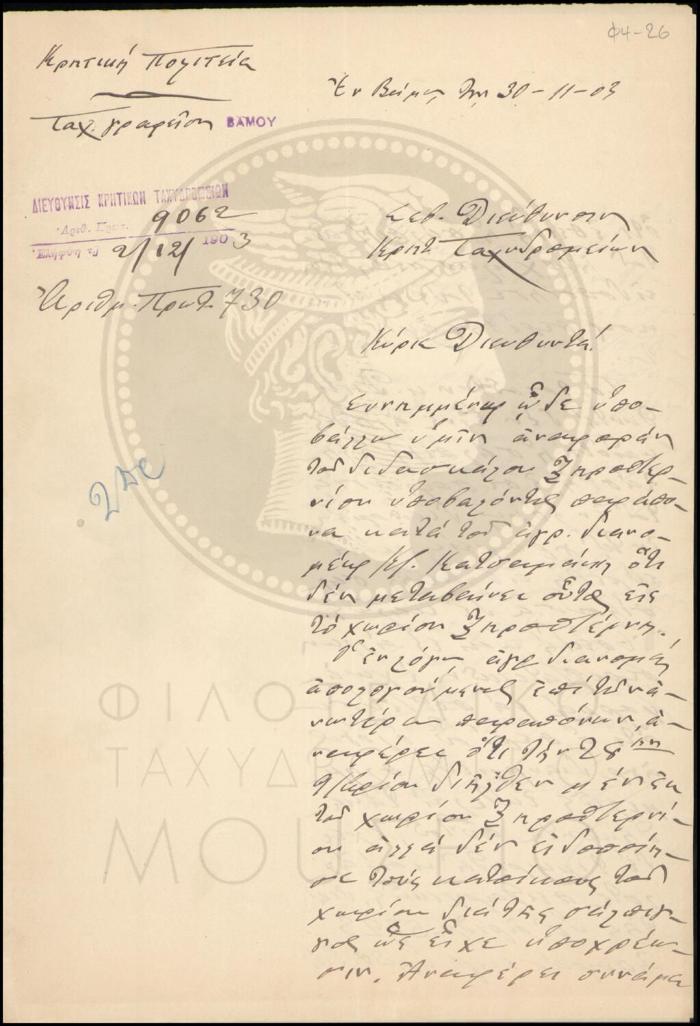 Φ4-26
Κρητική Πολιτεία
Ταχ. γραφεῖον ΒΑΜΟΥ
Ἐν Βάμῳ τῇ 30-11-03
ΔΙΕΥΘΥΝΣΙΣ ΚΡΗΤΙΚΩΝ ΤΑΧΥΔΡΟΜΕΙΩΝ
Ἀριθ. Πρωτ. 9062
Ἐλήφθη τῇ 2/12/ 1903
Ἀριθμ. Πρωτ. 730
Σεβ. Διεύθυνσιν
Κρητ. Ταχυδρομείων
Κύριε Διευθυντά!
Συνημμένως ὧδε ὑπο-
βάλλω ὑμῖν ἀναφοράν
τοῦ διδασκάλου Ξηροστερ-
νίου ὑποβαλόντος παράπο-
να κατά τοῦ ἀγρ. διανο-
μέως Κ. Κατσαμάκη ὅτι
δέν μεταβαίνει οὗτος εἰς
τό χωρίον Ξηροστέρνι.
Ὁ ἐν λόγῳ ἀγρ διανομεύς
ἀπολογούμενος ἐπί τῶν ἀ-
νωτέρω παραπόνων, ἀ-
ναφέρει ὅτι τήν 28ην
διῆλθεν μέν ἐκ
τοῦ χωρίου Ξηροστερνί-
ου ἀλλά δέν εἰδοποίη-
σε τούς κατοίκους τοῦ
χωρίου διά τῆς σάλπιγ-
γος ὡς εἶχε ὑποχρέω-
σιν. Ἀναφέρει συνάμα
ΦΙΛΟΤΕΛΙΚΟ
ΤΑΧΥΔΡΟΜΙΚΟ
ΜΟΥΣΕΙΟ